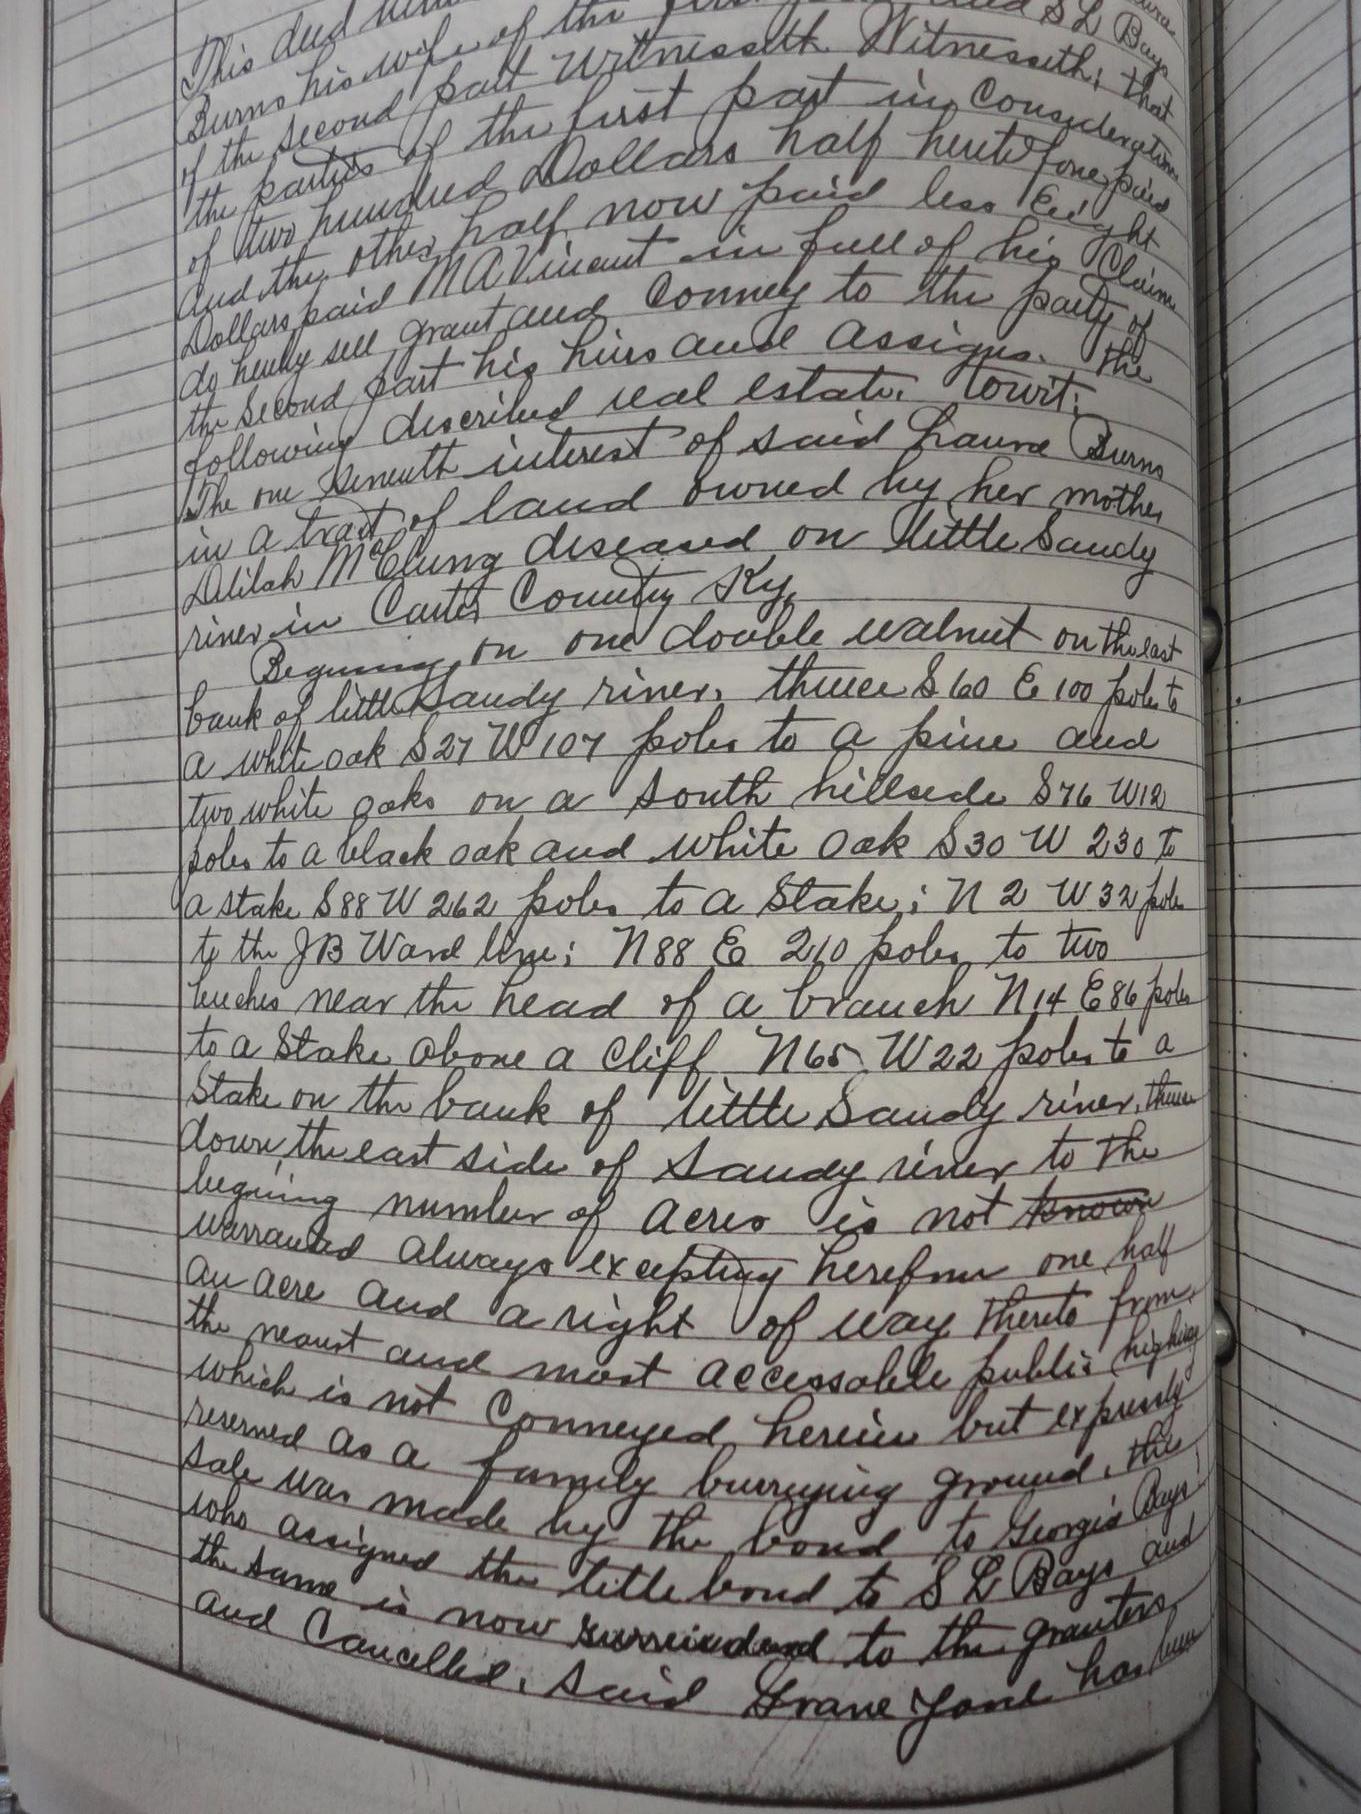 This deed
Burns his wife of the first and S L Bays
of the second part Witnesseth Witnesseth; that
the parties of the first part in consideration
of two hundred Dollars half heretofore paid
and the other half now paid less Eight
Dollars paid M A Vincent in full of his Claim
do hereby sell grant and Convey to the party of
the second part his hiers and assigns. the
following described real estate. towit;
The one seneuth interest of said Laura Burns
in a tract of land owned by her mother
Delilah McClung diseased on little Sandy
river in Carter County Ky,
Begining on one double walnut on the east
bank of little Sandy river, thence S 60 E 100 poles to
a white oak S27 W 107 poles to a pine and
two white oaks on a south hillside S76 W12
poles to a black oak and white oak S30 W 230 to
a stake S88 W 262 poles to a Stake; N 2 W 32 poles
to the JB Ward line; N88 E 210 poles to two
beeches near the head of a branch N14 E86 poles
to a Stake above a Cliff N65 W22 poles to a
Stake on the bank of little Sandy river, thence
down the east side of Sandy river to the
begining number of acres is not known
warranted always excepting herefrom one half
an acre and a right of way thereto from
the nearest and most accessable public highway
which is not Conveyed herein but expressly
reserved as a family burrying ground, this
sale was made by the bond to George Bays;
who assigned the title bond to S L Bays and
the same is now surrendered to the grantors
and Cancelled, said Grave Yard has been